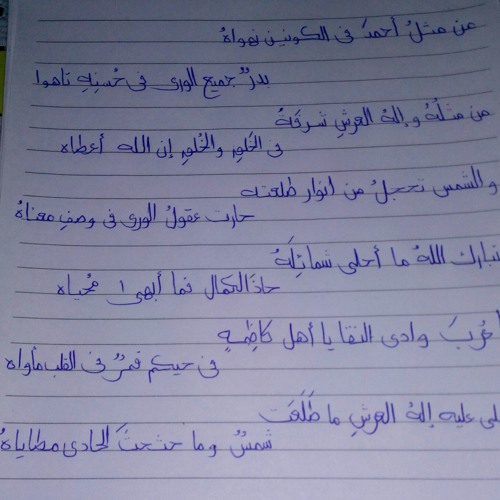 عن مثلُ أحمدَ فى الكونين نهواهُ
بدرٌ جميع الورى فى حُسنِهِ تاهوا
من مثلُهُ وإلهُ العرشِ شرفَهُ
فى الخَلقِ والخُلقِ إن الله أعطاه
والشمس تخجلُ من انوار طلعته
حارت عقولُ الورى فى وصفِ معناهُ
تبارك اللهُ ما أحلى شمائِلَهُ
حاذ الكمال فما أبهى ا مُحياه
عُربَ وادى النقا يا أهل كاظِمةٍ
فى حيكم قمرٌ فى القلب مأواه
لى عليه إلهُ العرشِ ما طَلَعَت
شمسٌ وما حثحثَ الحادى مطاياهُ